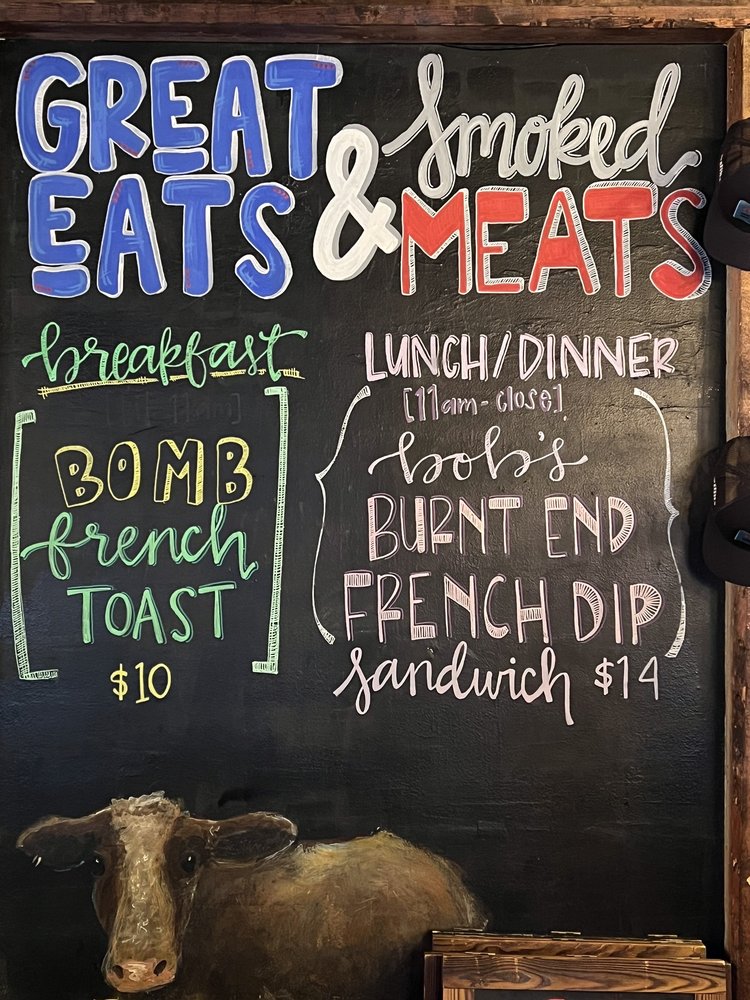 GREAT
EATS
&
Smoked
MEATS
breakfast
BOMB
french
TOAST
$10
LUNCH/DINNER
[11am-close]
bob's
BURNT END
FRENCH DIP
sandwich $14